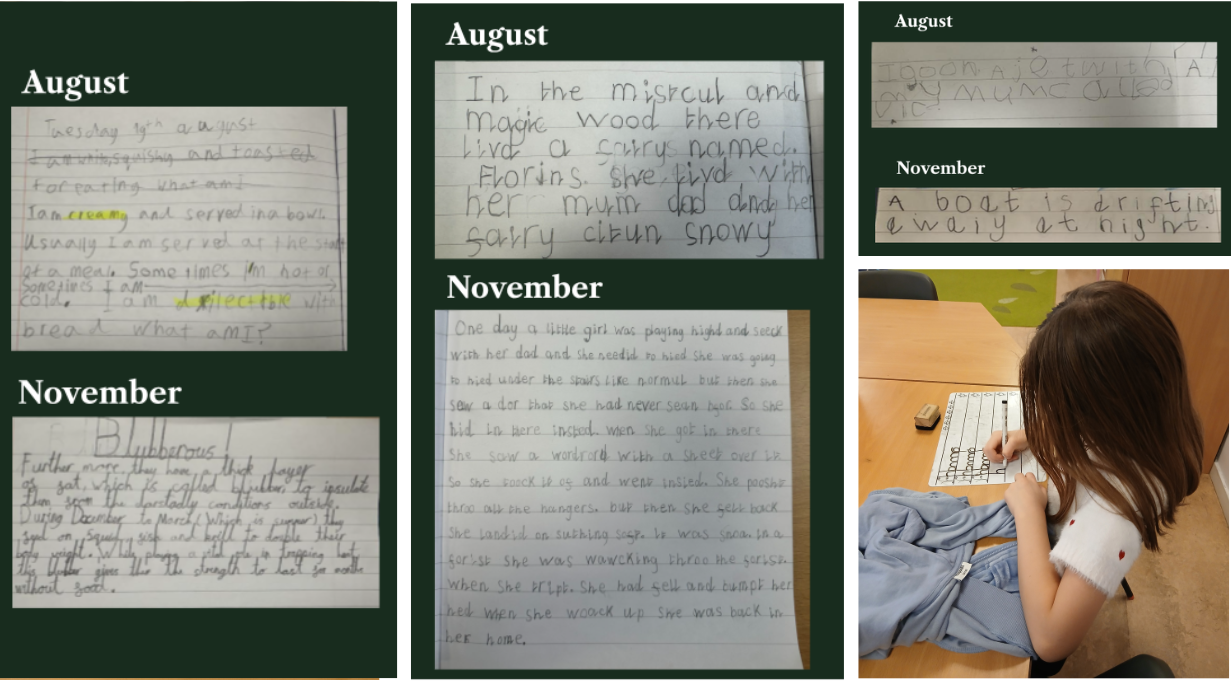 August
Tuesday 19th a august
I am white, squishy and toasted
for earing what am I
I am creamy and served in a bowl.
Usually I am served at the start
of a meal. Some times I'm hot or
Sometimes I am
cold. I am with
bread what am I?
November
Blubberous!
Further more, they have a thick layer
of fat, which is called blubber, to insulate
them from the dastardly conditions outside.
During December to March (Which is summer) they
fish and krill to double their
body weight. While playing a vital role in trapping heat,
this blubber gives them the strength to last for months
without food.
August
In the mistcul and
magic wood there
livd a fairy named.
Florins. She livd with
her mum dad and her
fairy citun snowy
November
One day a little girl was playing highd and seeck
with her dad and she needid to hied she was going
to hied under the stairs like normul but then she
saw a dor that she had never sean bfor So she
hid in there insted. when she got in there
She saw a wordrord with a sheet over it
So she toock it of and went insied. She poosht
throo all the hangers. but then she fell back
She landid on suthing soft. it was snow in a
forist she was wawcking throo the forist.
when she tript. She had fell and bumpt her
hed when she woock up she was back in
her home.
August
my mum c
November
A boat is drifting
awaiy at night.